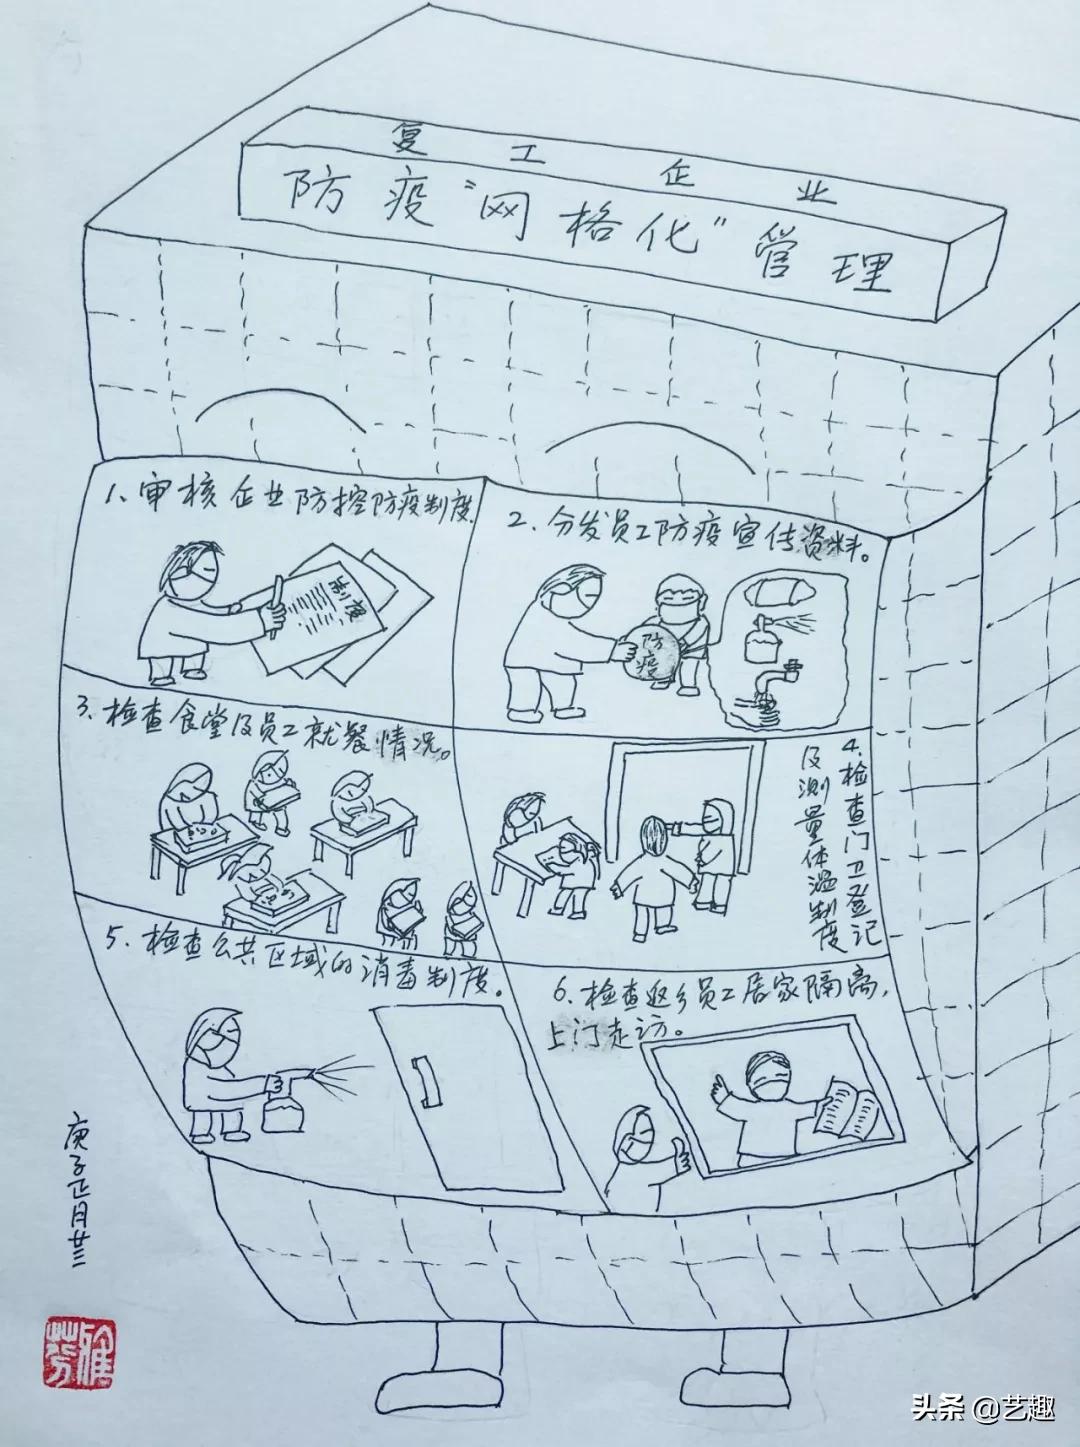 复工企业
防疫“网格化”管理
1、审核企业防控防疫制度。
制度
2、分发员工防疫宣传资料。
防
疫
3、检查食堂及员工就餐情况。
4、检查门卫登记
及测量体温制度
5、检查公共区域的消毒制度。
6、检查返乡员工居家隔离，
上门走访。
庚子正月廿三
雅芳
头条 @艺趣